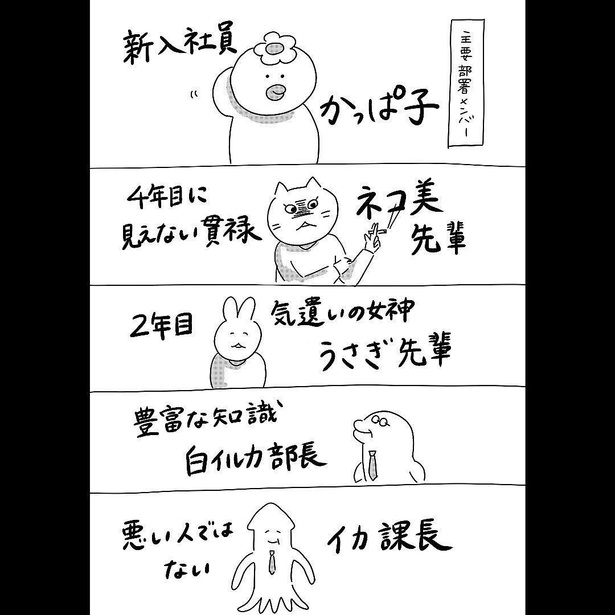 主要部署メンバー
新入社員
かっぱ子
4年目に
見えない貫禄
ネコ美
先輩
2年目
気遣いの女神
うさぎ先輩
豊富な知識
白イルカ部長
悪い人では
ない
イカ課長